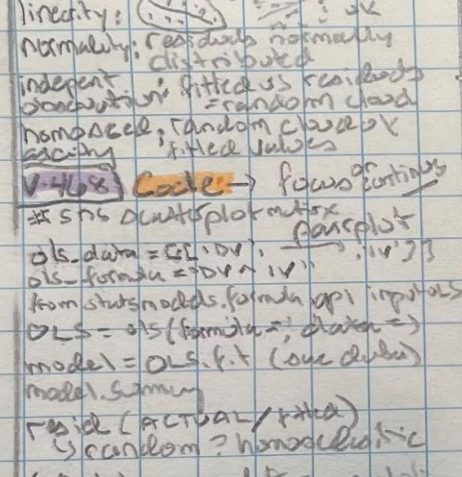 linearity: : ok
normality: residuals normally
distributed
indepent
observation: fitted vs residuals
= random cloud
homosced; random cloud ok
ascity fitted values
V.468 Code → focus on continuos
# sns scatterplot matrix
pairplot
ols_data = [['DV', 'IV']]
ols_formula = "DV ~ IV"
from statsmodels.formula.api import OLS
OLS = ols(formula = , data = )
model = OLS.fit
model.summary
resid (ACTUAL / fitted)
↳ random? homoscedastic